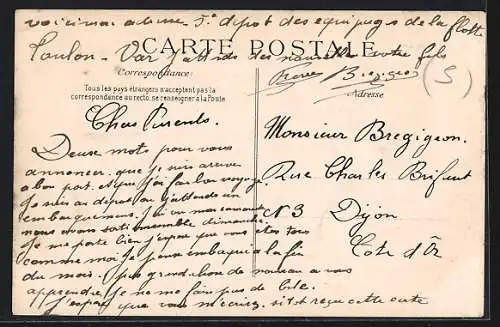 voici mon adresse 5e depot des equipages de la flotte
Toulon - Var J'attends des nouvelles votre fils
CARTE POSTALE
Correspondance
Tous les pays étrangers n'acceptent pas la
correspondance au recto, se renseigner à la Poste
Adresse
Chers Parents.
Deux mots pour vous
annoncer que je suis arrivé
a bon port. Apres j'ai fait bon voyage
Je suis au depot ou j'attends un
embarquement. J'ai vu
nous avons sorti ensemble dimanche
Je me porte bien j'espere que vous etes tous
comme moi Je pense embarquer a la fin
du mois. pas grand chose de nouveau a vous
apprendre je ne me fais pas de bile.
J'espere que vous m'ecrirez sitot reçu cette carte
Monsieur Bregigeon.
Rue Charles Brifaut
N 3 Dijon
Cote d'Or